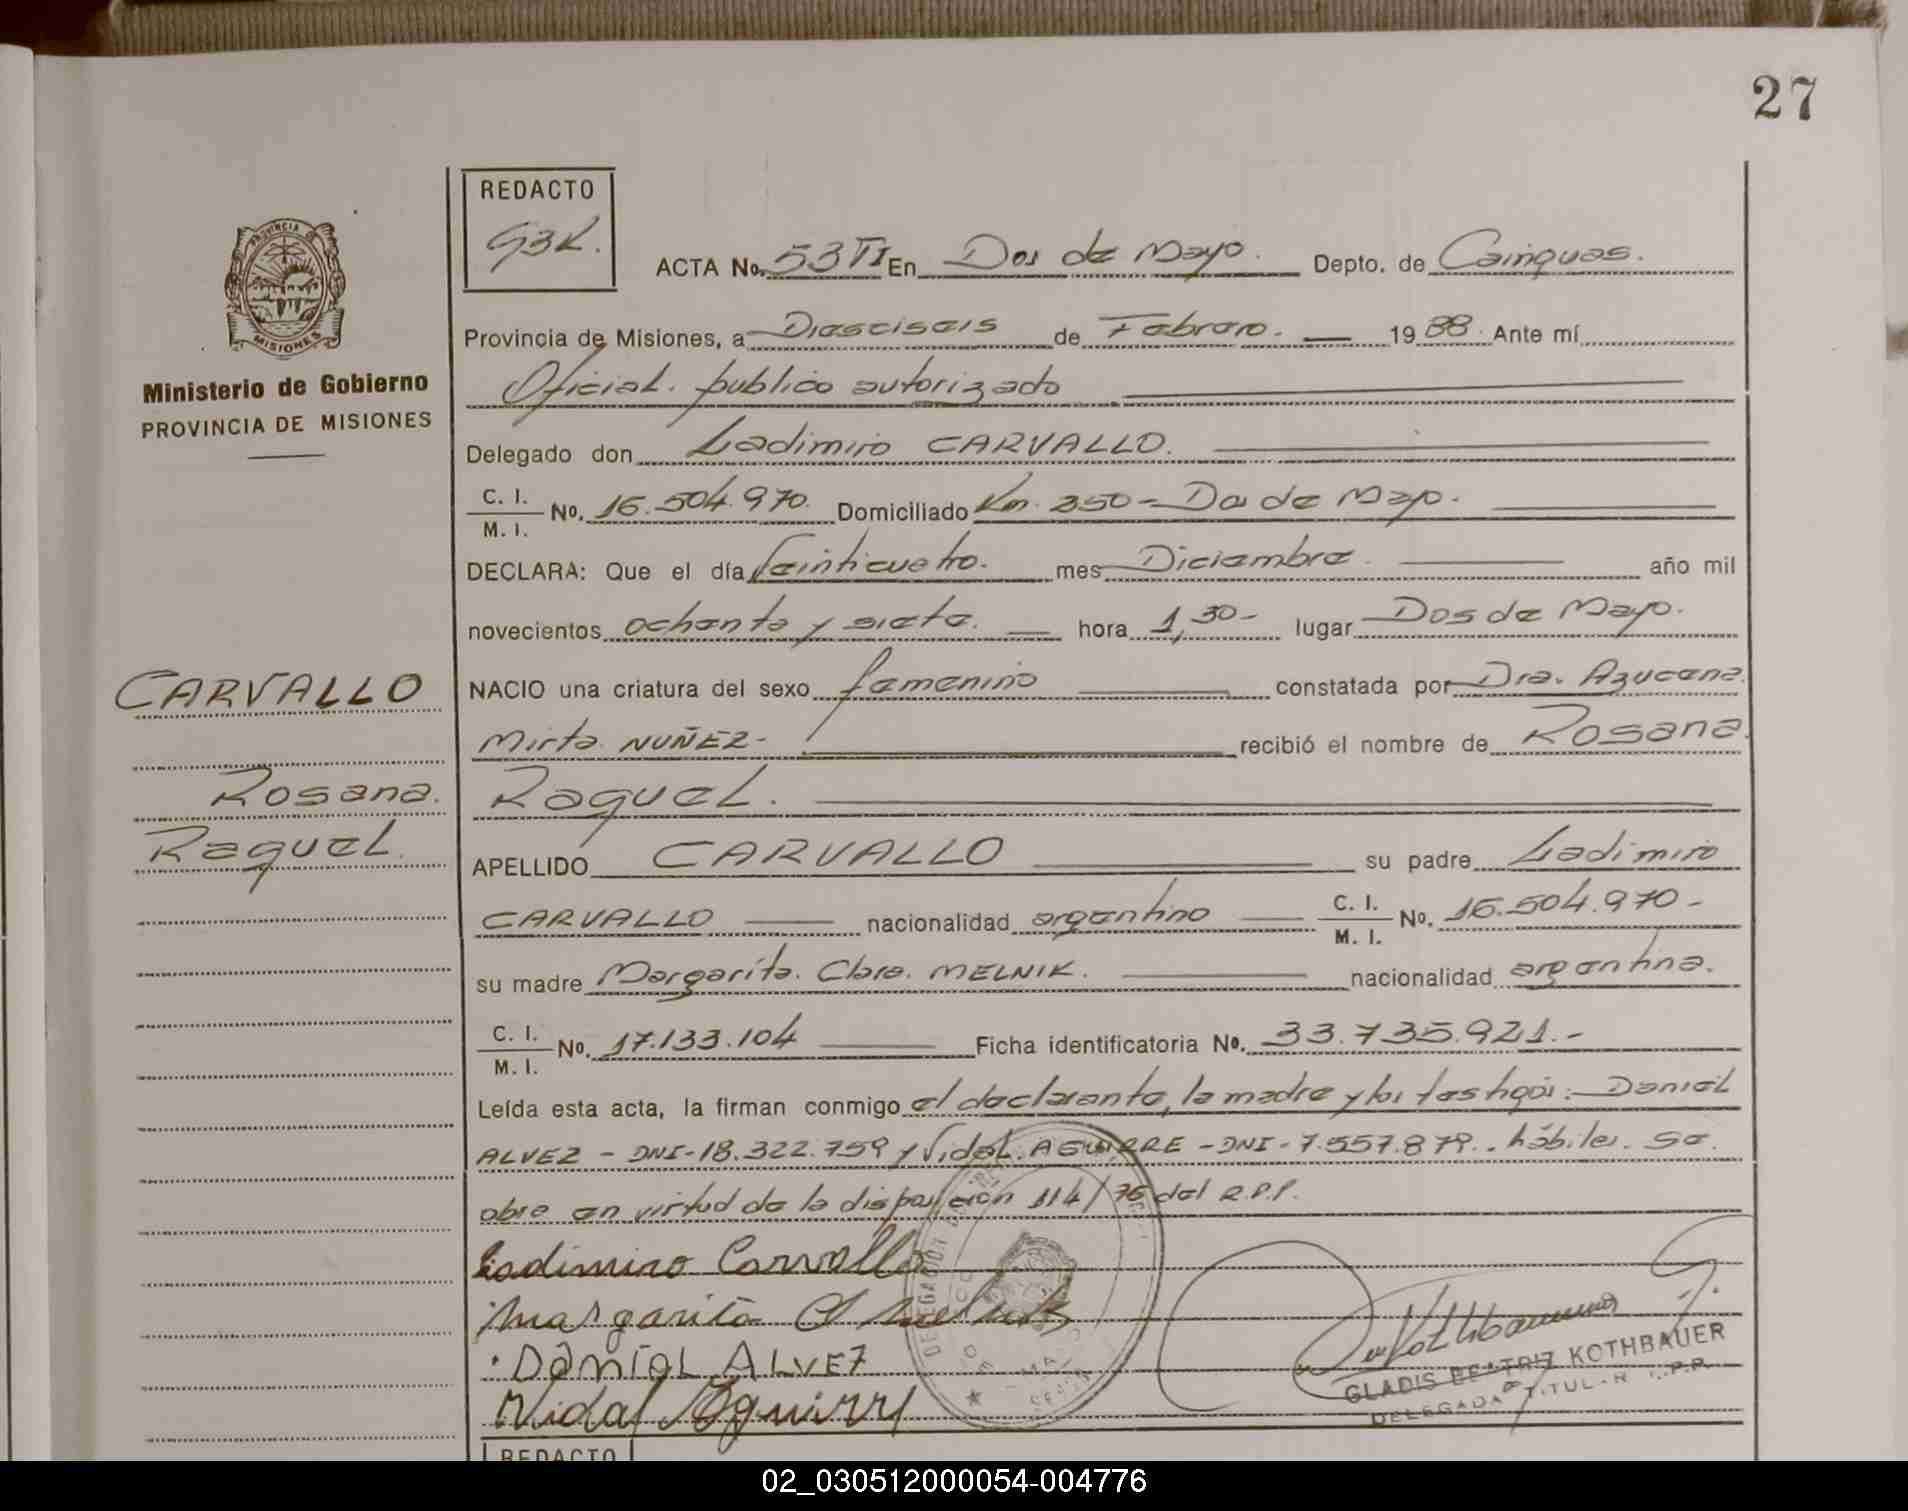 27
REDACTO
G3K.
ACTA No. 53 TI En Dos de Mayo. Depto. de Cainguas.
PROVINCIA DE
MISIONES
Provincia de Misiones, a Dieseiseis de Febrero. 1988. Ante mí
Ministerio de Gobierno
PROVINCIA DE MISIONES
Oficial. publico autorizado
Delegado don Ladimiro CARVALLO.
C. I.
M. I. No. 16.504.970. Domiciliado Km. 250 - Dos de Mayo.
DECLARA: Que el día Veinticuatro. mes Diciembre. año mil
novecientos ochenta y siete. hora 1,30- lugar Dos de Mayo.
CARVALLO
Rosana.
Raquel.
NACIO una criatura del sexo femenino constatada por Dra. Azucena
Mirta NUÑEZ- recibió el nombre de Rosana
Raquel.
APELLIDO CARVALLO su padre Ladimiro
CARVALLO nacionalidad argentino C. I.
M. I. No. 16.504.970-
su madre Margarita. Clara. MELNIK. nacionalidad argentina.
C. I.
M. I. No. 17.133.104 Ficha identificatoria No. 33.735.921.-
Leída esta acta, la firman conmigo el declarante, la madre y los testigos: Daniel
ALVEZ - DNI-18.322.759 y Vidal. AGUIRRE - DNI - 7.557.879.. hábiles. Se.
abre en virtud de la disposicion 114/76 del R.P.P.
Ladimiro Carvallo
Margarita C Melnik
DANIEL ALVEZ
Vidal Aguirre
DELEGACION
DE MAYO
Kothbauer G.
GLADIS BEATRIZ KOTHBAUER
DELEGADA TITULAR R.P.P.
REDACTO
02_030512000054-004776